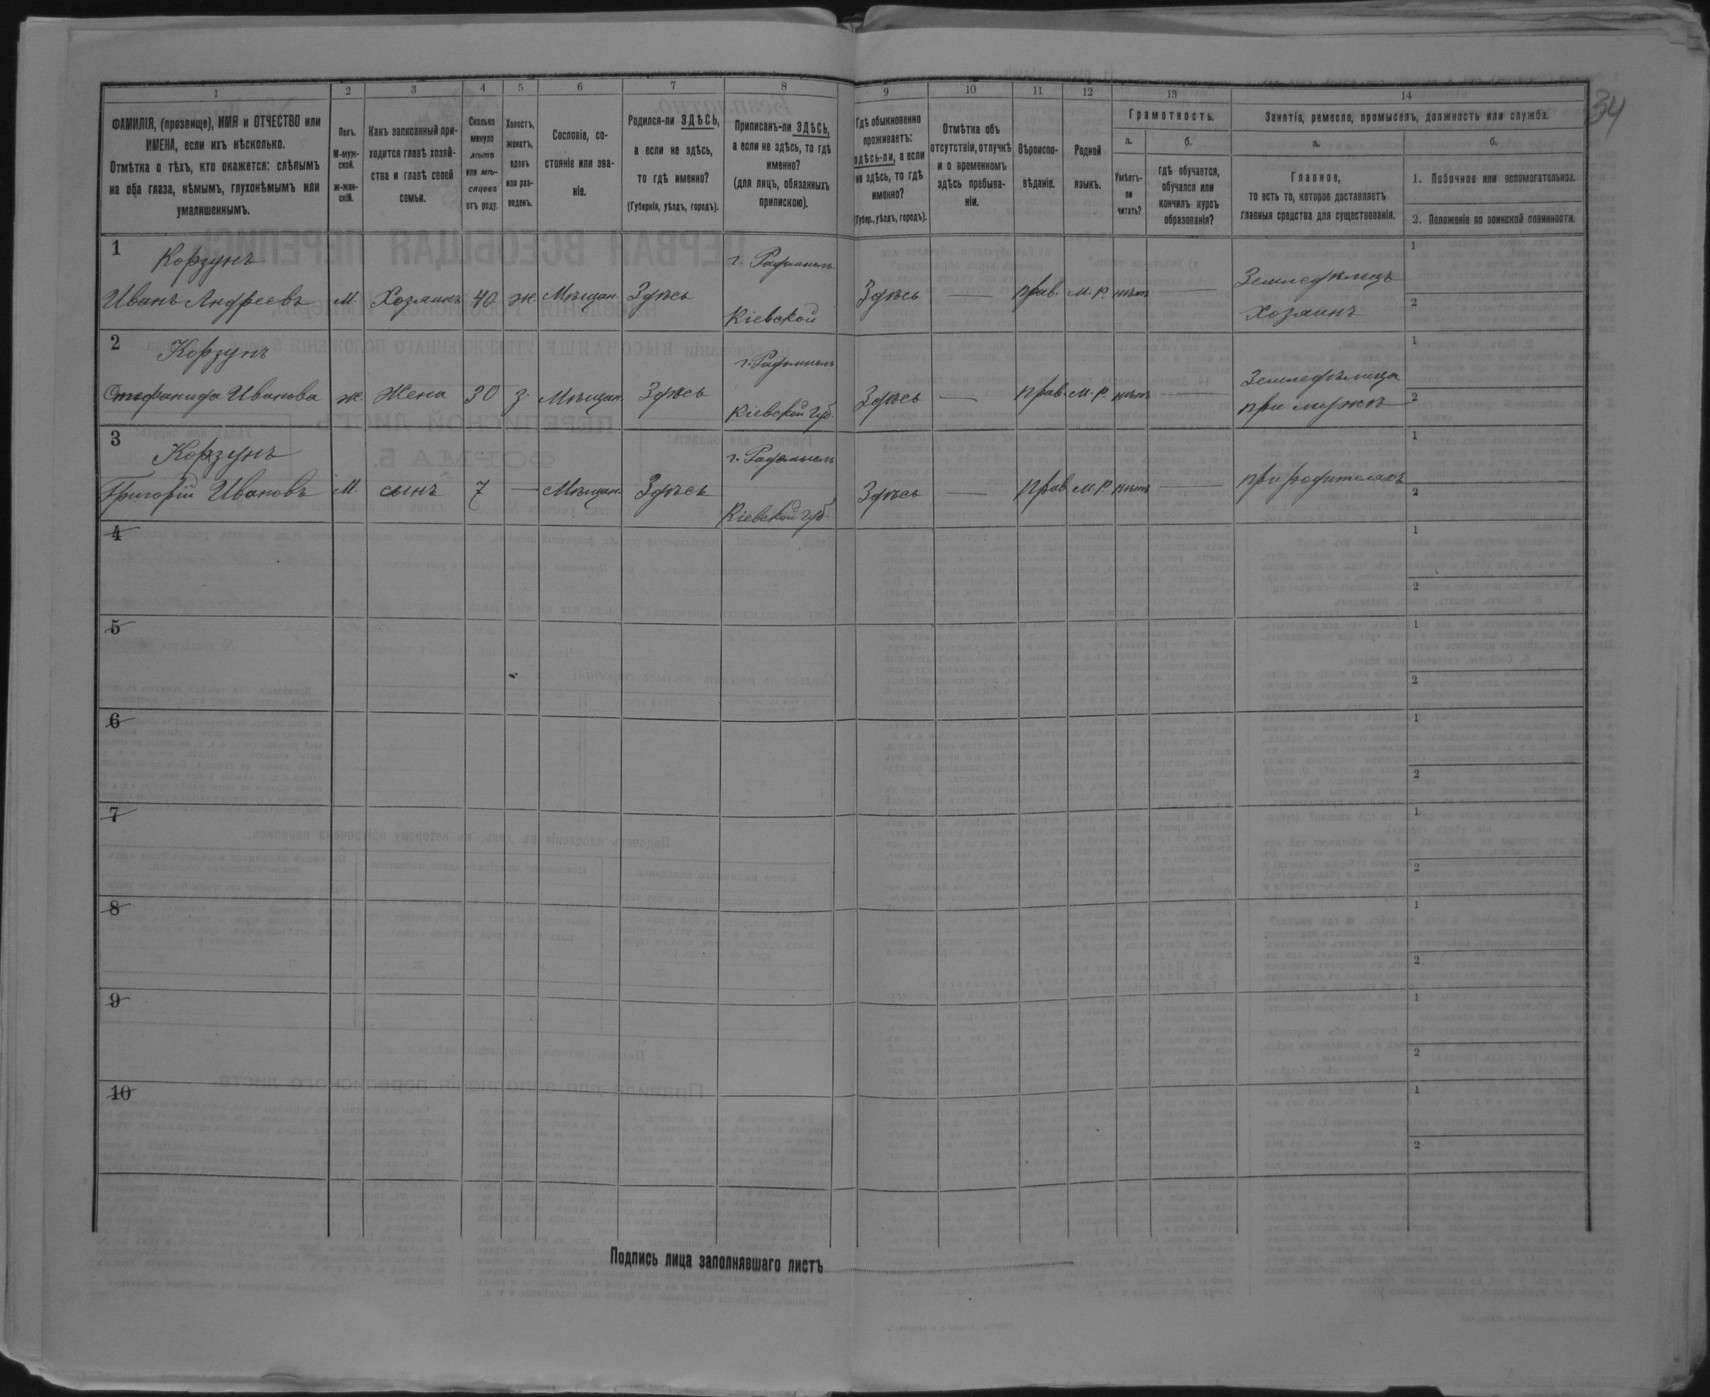 34
1 2 3 4 5 6 7 8 9 10 11 12 13 14
ФАМИЛІЯ, (прозвище), ИМЯ и ОТЧЕСТВО или
ИМЕНА, если ихъ нѣсколько.
Отмѣтка о тѣхъ, кто окажется: слѣпымъ
на оба глаза, нѣмымъ, глухонѣмымъ или
умалишеннымъ.
Полъ.
М-муж-
ской.
ж-жен-
скій.
Какъ записанный при-
ходится главѣ хозяй-
ства и главѣ своей
семьи.
Сколько
минуло
лѣтъ
или мѣ-
сяцевъ
отъ роду.
Холостъ,
женатъ,
вдовъ
или раз-
веденъ.
Сословіе, со-
стояніе или зва-
ніе.
Родился-ли ЗДѢСЬ,
а если не здѣсь,
то гдѣ именно?
(Губернія, уѣздъ, городъ).
Приписанъ-ли ЗДѢСЬ,
а если не здѣсь, то гдѣ
именно?
(для лицъ, обязанныхъ
припискою).
Гдѣ обыкновенно
проживаетъ:
здѣсь-ли, а если
не здѣсь, то гдѣ
именно?
(Губер., уѣздъ, городъ).
Отмѣтка объ
отсутствіи, отлучкѣ
и о временномъ
здѣсь пребыва-
ніи.
Вѣроиспо-
вѣданіе.
Родной
языкъ.
Грамотность.
а.
Умѣетъ-
ли
читать?
б.
гдѣ обучается,
обучался или
кончилъ курсъ
образованія?
Занятіе, ремесло, промыселъ, должность или служба.
а.
Главное,
то есть то, которое доставляетъ
главныя средства для существованія.
б.
1. Побочное или вспомогательное.
2. Положеніе по воинской повинности.
1 Корзунъ г. Радомысль Земледѣлецъ 1
Иванъ Андреевъ М. Хозяинъ 40 ж. Мѣщан. Здѣсь Кіевской Здѣсь — прав. м. р. нѣтъ — Хозяинъ 2
2 Корзунъ г. Радомысль Земледѣлица 1
Стефанида Иванова ж. Жена 30 з. Мѣщан. Здѣсь Кіевской губ. Здѣсь — прав. м. р. нѣтъ — при мужѣ 2
3 Корзунъ г. Радомысль 1
Григорій Ивановъ М. сынъ 7 — Мѣщан. Здѣсь Кіевской губ. Здѣсь — прав. м. р. нѣтъ — при родителяхъ 2
4 1
2
5 1
2
6 1
2
7 1
2
8 1
2
9 1
2
10 1
2
Подпись лица заполнявшаго листъ